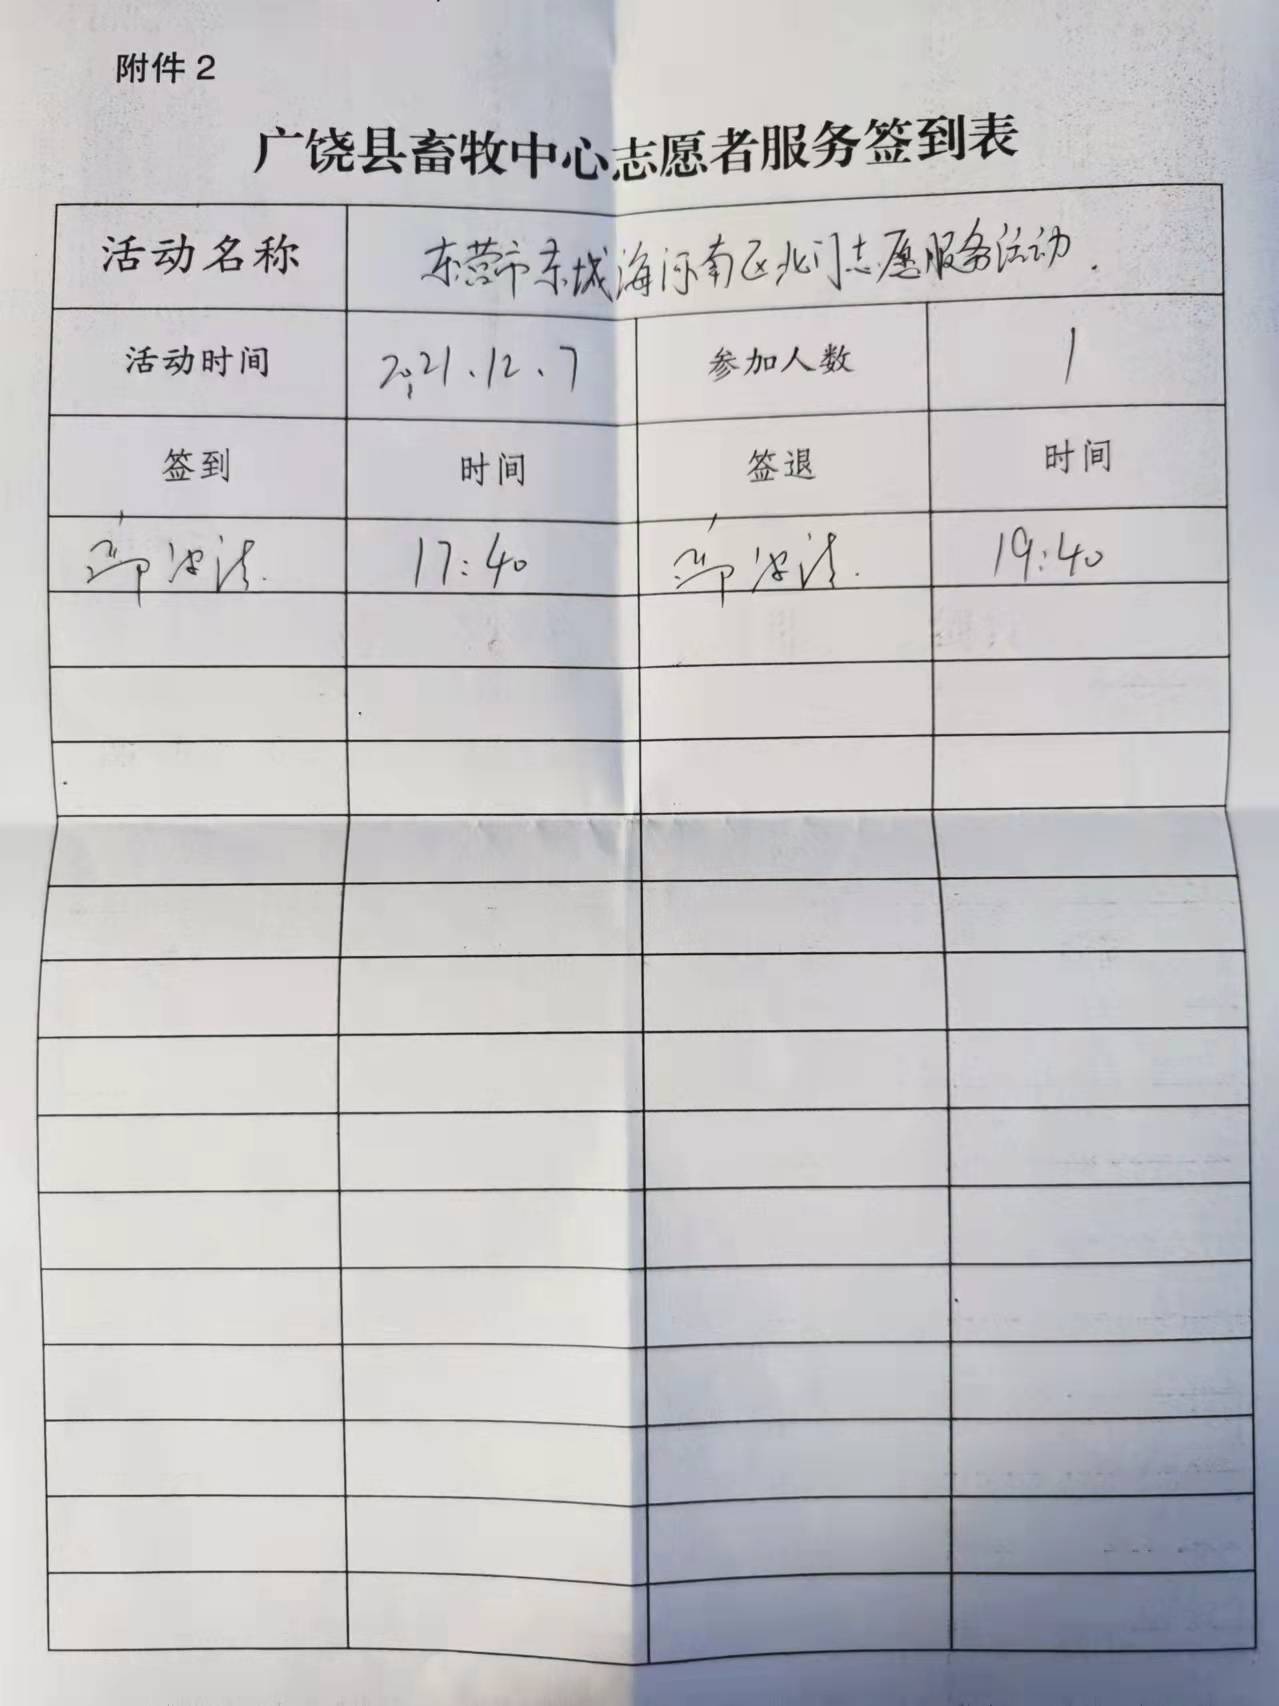 附件2
广饶县畜牧中心志愿者服务签到表
活动名称 东营市东城海河南区北门志愿服务活动.
活动时间 2021、12、7 参加人数 1
签到 时间 签退 时间
17:40 19:40